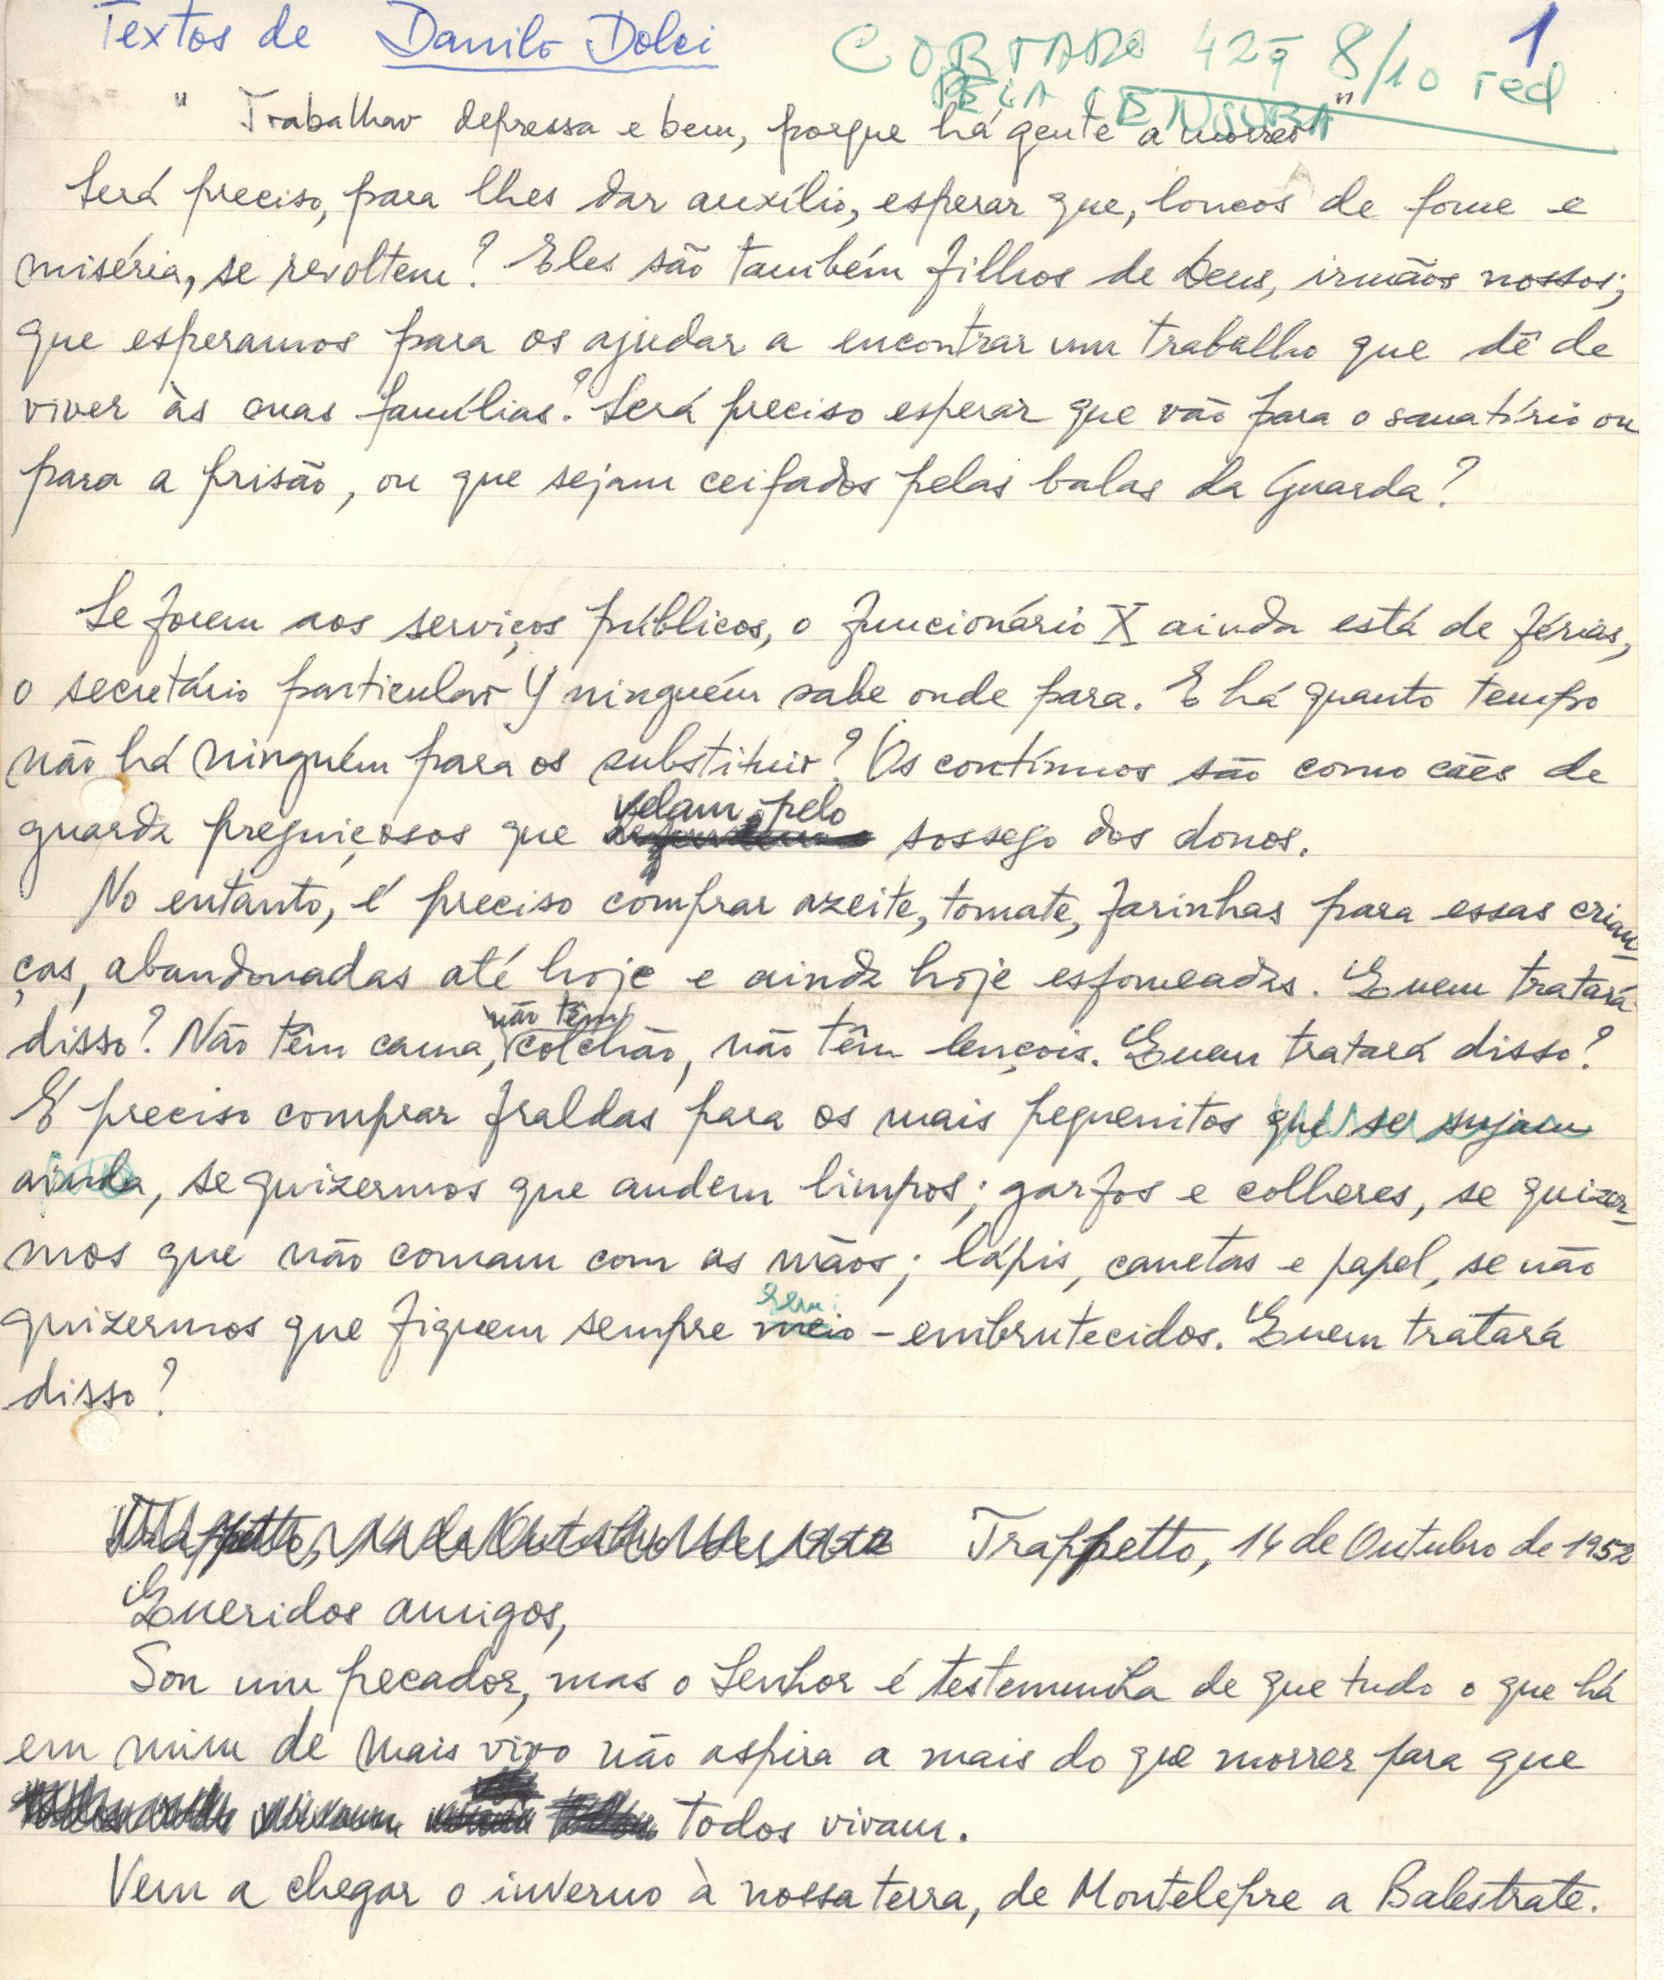 Textos de Danilo Dolci
CORTADO 42q 8/10 red
1
PELA CENSURA
"Trabalhar depressa e bem, porque há gente a morrer"
Será preciso, para lhes dar auxílio, esperar que, loucos de fome e
miséria, se revoltem? Eles são também filhos de Deus, irmãos nossos;
que esperamos para os ajudar a encontrar um trabalho que dê de
viver às suas famílias? Será preciso esperar que vão para o sanatório ou
para a prisão, ou que sejam ceifados pelas balas da Guarda?
Se forem aos serviços públicos, o funcionário X ainda está de férias,
o secretário particular Y ninguém sabe onde para. E há quanto tempo
não há ninguém para os substituir? Os contínuos são como cães de
guarda preguiçosos que velam pelo sossego dos donos.
No entanto, é preciso comprar azeite, tomate, farinhas para essas crian-
ças, abandonadas até hoje e ainda hoje esfomeadas. Quem tratará
disso? Não têm cama, não têm colchão, não têm lençois. Quem tratará disso?
É preciso comprar fraldas para os mais pequenitos que se sujam
ainda, se quizermos que andem limpos; garfos e colheres, se quizer-
mos que não comam com as mãos; lápis, canetas e papel, se não
quizermos que fiquem sempre meio semi-embrutecidos. Quem tratará
disso?
Trappetto, 14 de Outubro de 1952
Queridos amigos,
Sou um pecador, mas o Senhor é testemunha de que tudo o que há
em mim de mais vivo não aspira a mais do que morrer para que
todos vivam.
Vem a chegar o inverno à nossa terra, de Montelepre a Balestrate.